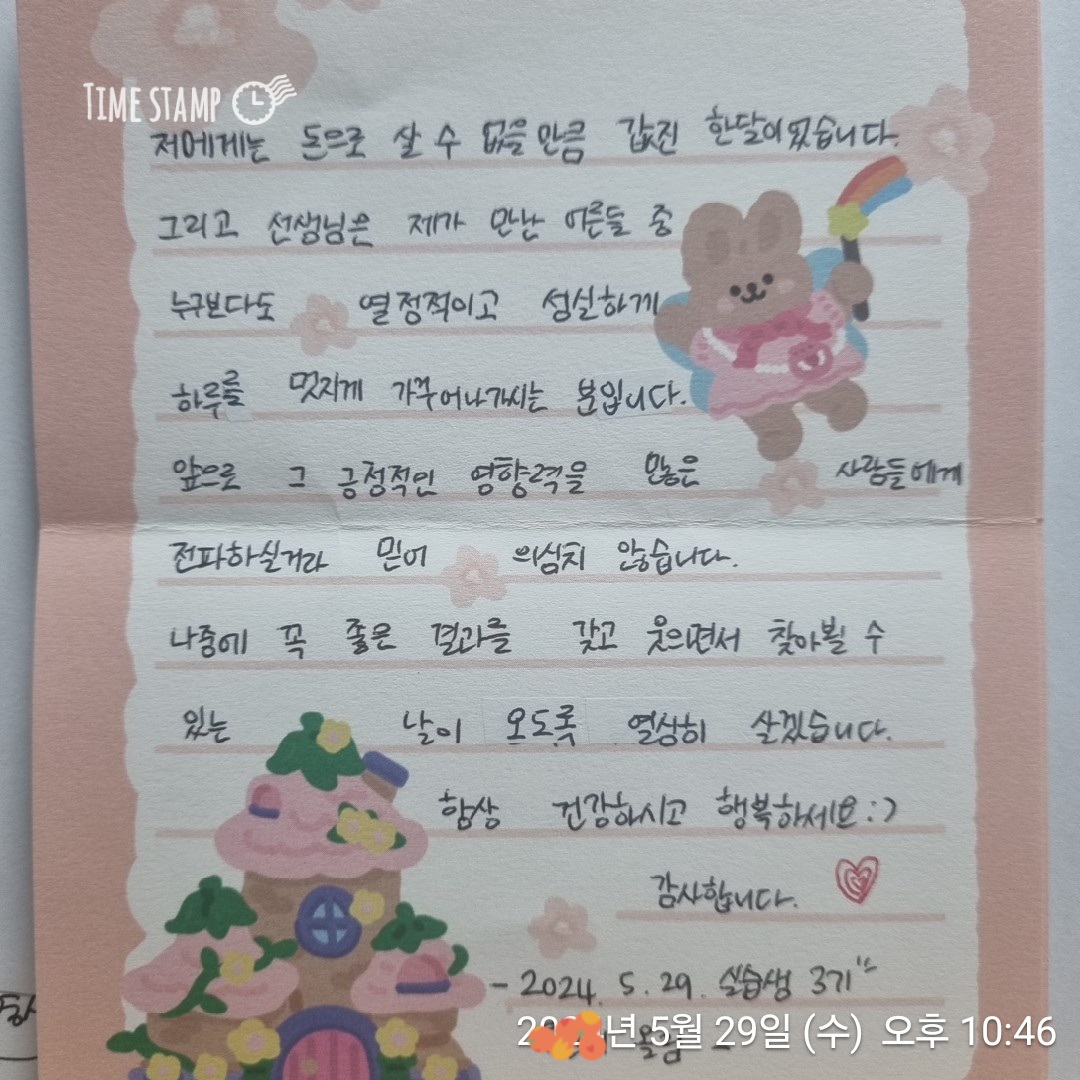 TIME STAMP
저에게는 돈으로 살 수 없을만큼 값진 한달이었습니다.
그리고 선생님은 제가 만난 어른들 중
누구보다도 열정적이고 성실하게
하루를 멋지게 가꾸어나가시는 분입니다.
앞으로 그 긍정적인 영향력을 많은 사람들에게
전파하실거라 믿어 의심치 않습니다.
나중에 꼭 좋은 결과를 갖고 웃으면서 찾아뵐 수
있는 날이 오도록 열심히 살겠습니다.
항상 건강하시고 행복하세요:)
감사합니다.
- 2024. 5. 29. 실습생 3기
년 5월 29일 (수) 오후 10:46